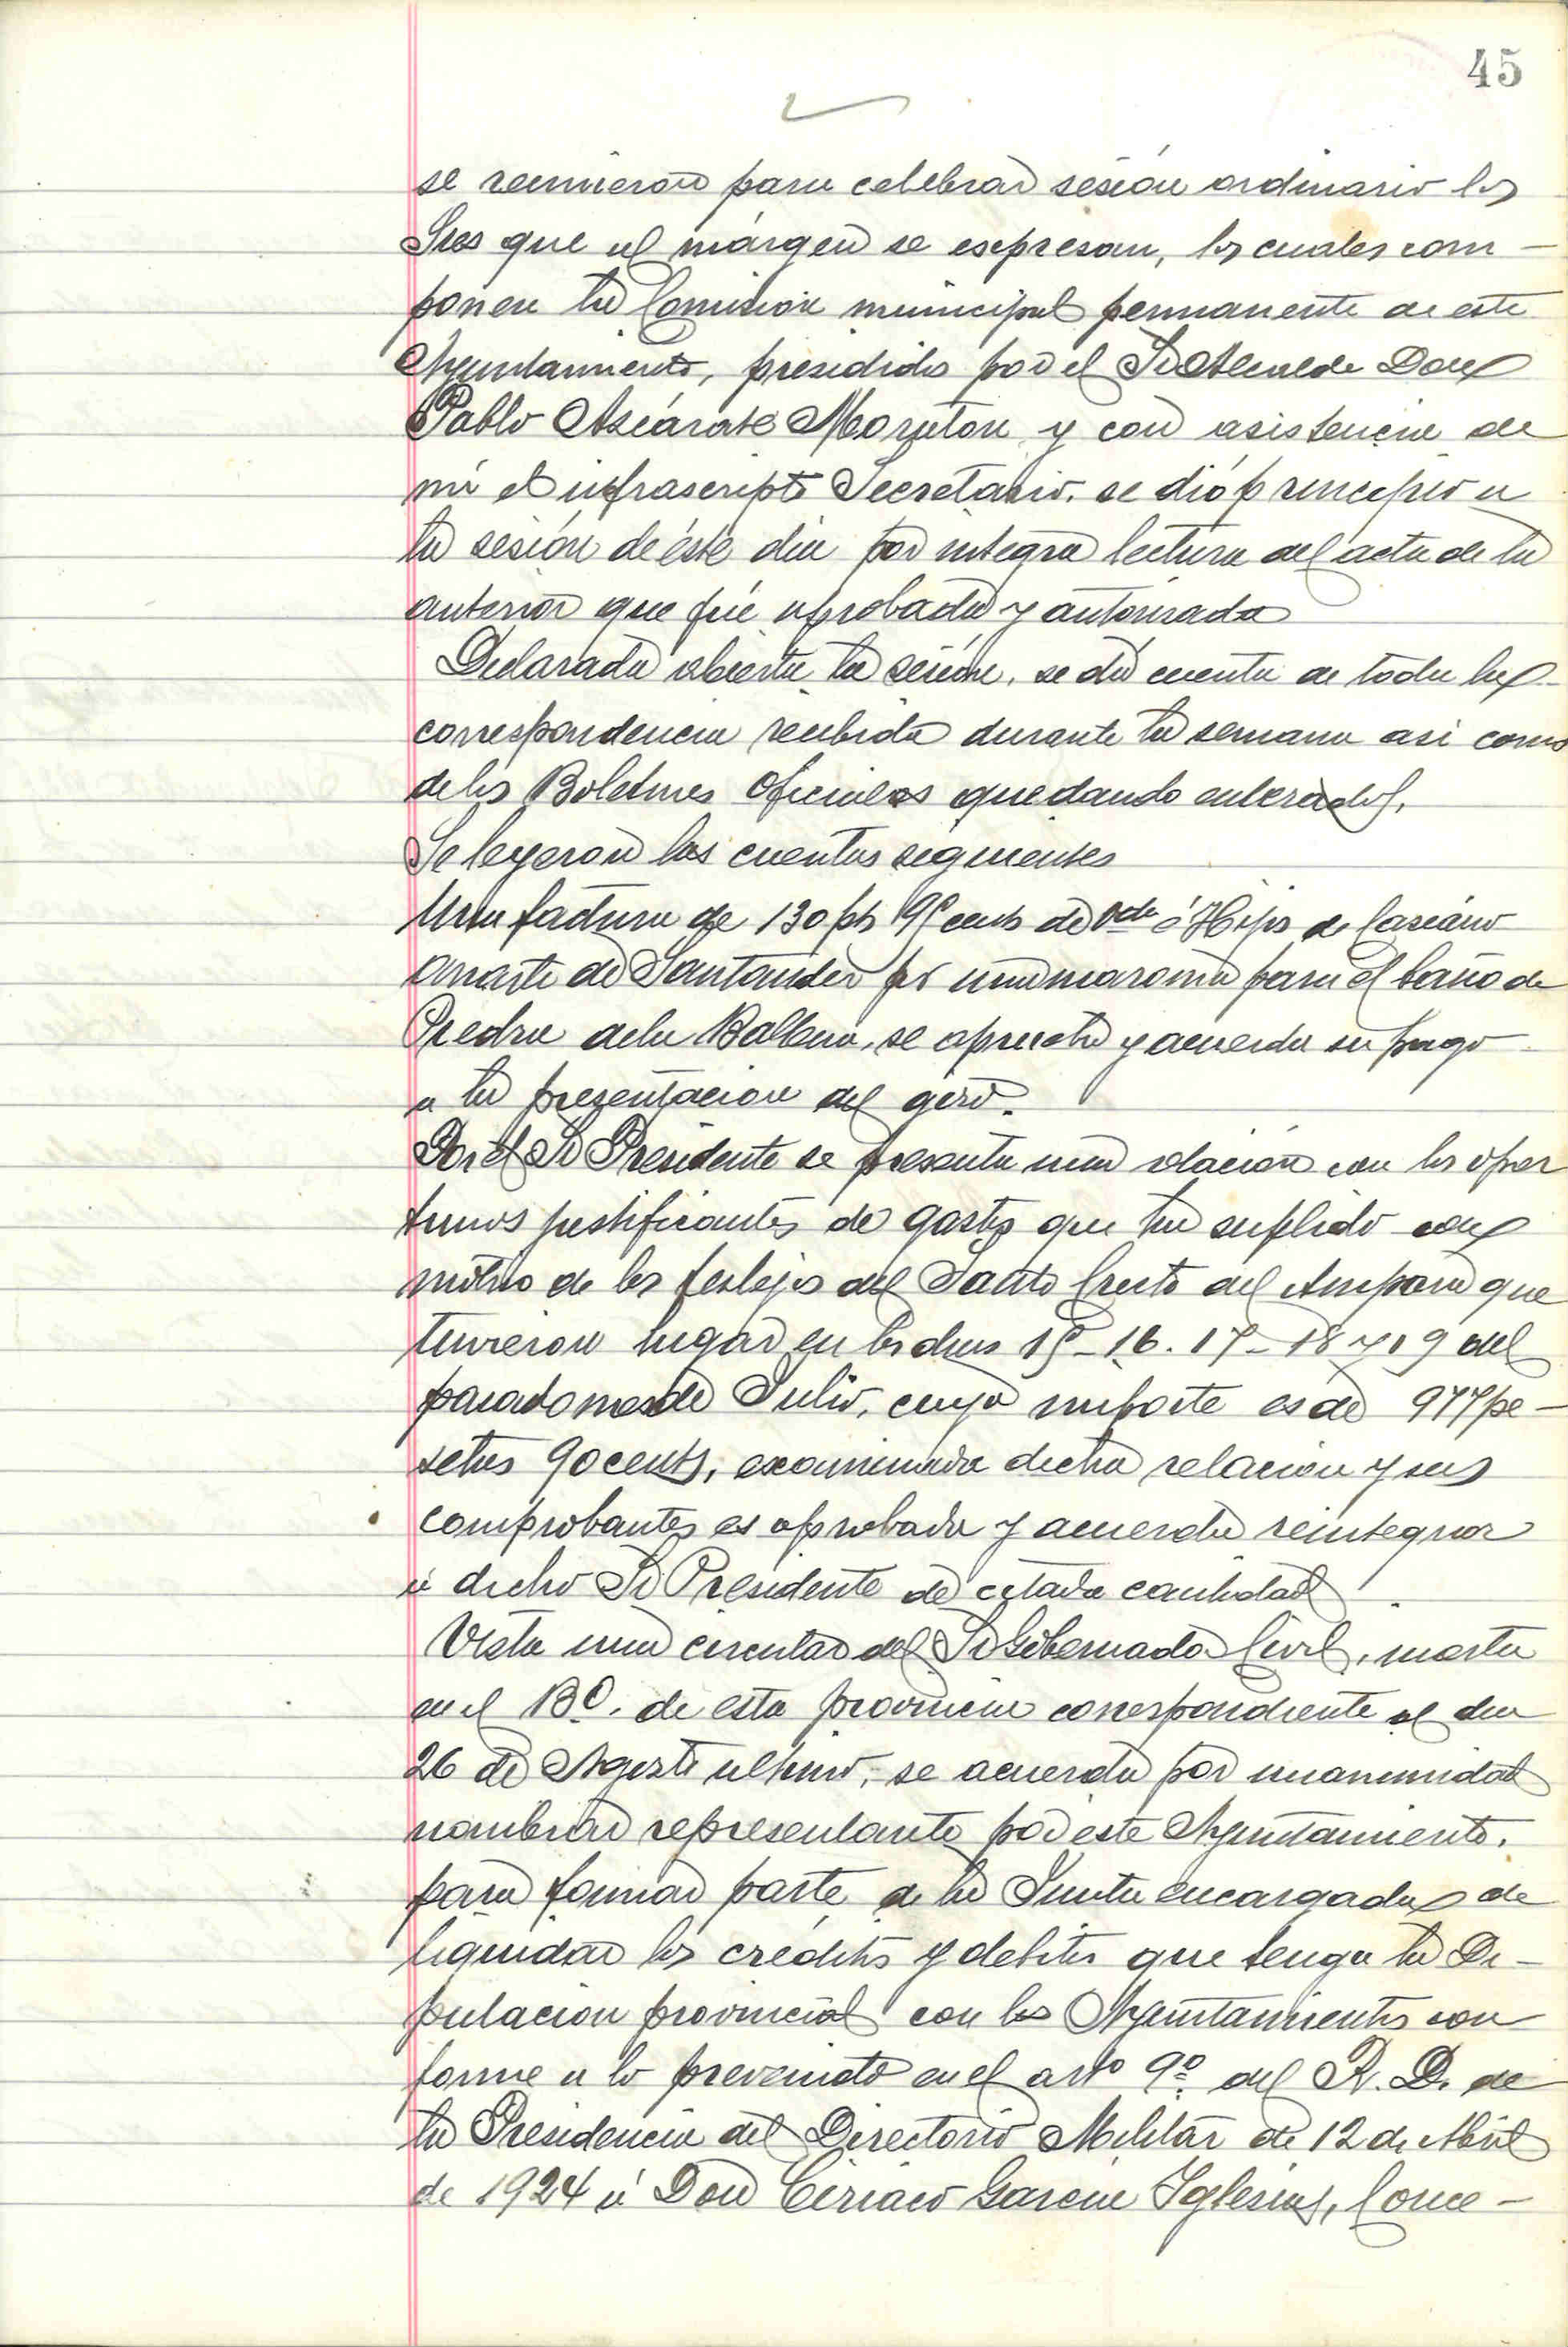 45
se reunieron para celebrar sesión ordinario los
Sres que al márgen se espresan, los cuales com-
ponen la Comision municipal permanente de este
Ayuntamiento, presidido por el Sr Alcalde Don
Pablo Azcárate Moruton y con asistencia de
mi el infrascripto Secretario. se dió principio a
la sesión de éste dia por integra lectura del acta de la
anterior que fué aprobada y autorizada
Declarada abierta la sesión, se dá cuenta de toda la
correspondencia recibida durante la semana asi como
de los Boletines Oficiales quedando enterados.
Se leyeron las cuentas siguientes
Una factura de 130 pts 90 cents de Vda é Hijos de Casiano
de Santander por una maroma para el baño de
Piedra de la Ballena, se aprueba y acuerda su pago
a la presentacion del giro.
Por el Sr Presidente se presenta una relación con los opor
tunos justificantes de gastos que ha suplido con
motivo de los festejos del Santo Cristo del Amparo que
tuvieron lugar en los dias 15-16-17-18 y 19 del
pasado mes de Julio, cuyo importe es de 977 pe-
setas 90 cents, examinada dicha relacion y sus
comprobantes es aprobada y acuerda reintegrar
á dicho Sr Presidente de citada cantidad
Vista una circular del Sr Gobernador Civil, inserta
en el B.O. de esta provincia correspondiente al dia
26 de Agosto ultimo, se acuerda por unanimidad
nombrar representante por este Ayuntamiento.
para formar parte de la Junta encargada de
liquidar los créditos y debitos que tenga la Di-
putacion provincial con los Ayuntamientos con
forme a lo prevenido en el artº 9º del R. D. de
la Presidencia del Directorio Militar de 12 de Abril
de 1924 á Don Ciriaco Garcia Iglesias, Conce-